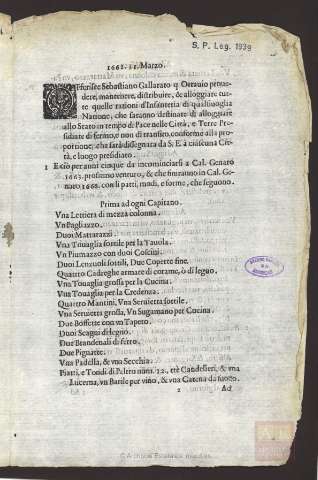 S. P. Leg. 1939
1662. 11. Marzo.
OFferisce Sebastiano Gallarato q. Ottauio prouedere, mantenere, distribuire, & alloggiare tutte quelle razioni d'Infanteria di qualsiuoglia Natione, che saranno destinate di alloggiare allo Stato in tempo di Pace nelle Città, e Terre Presidiate di fermo, e non di transito, conforme alla proportione, che sarà dissignata da S.E. à ciascuna Città, e luogo presidiato.
1 E ciò per anni cinque da incominciarsi a Cal. Genaro
1663. prossimo venturo, & che finiranno in Cal. Ge-
naro 1668. con li patti, modi, e forme, che seguono.
Prima ad ogni Capitano.
Vna Lettiera di mezza colonna.
Vn Pagliazzo.
Duoi Mattarazzi.
Vna Touaglia sottile per la Tauola.
Vn Piumazzo con duoi Coscini.
Duoi Lenzuoli sottili, Due Coperte fine.
Quattro Cadreghe armate di corame, ò di legno.
Vna Touaglia grossa per la Cucina.
Vna Touaglia per la Credenza.
Quattro Mantini, Vna Seruietta sottile.
Vna Seruietta grossa, Vn Sugamano per Cucina.
Due Boffette con vn Tapeto.
Duoi Scagni di legno.
Due Brandenali di ferro.
Due Pignatte.
Vna Padella, & vna Secchia.
Piatti, e Tondi di Peltro num. 12. trè Candelieri, & vna
Lucerna, vn Barile per vino, & vna Catena da fuoco.
2 Ad